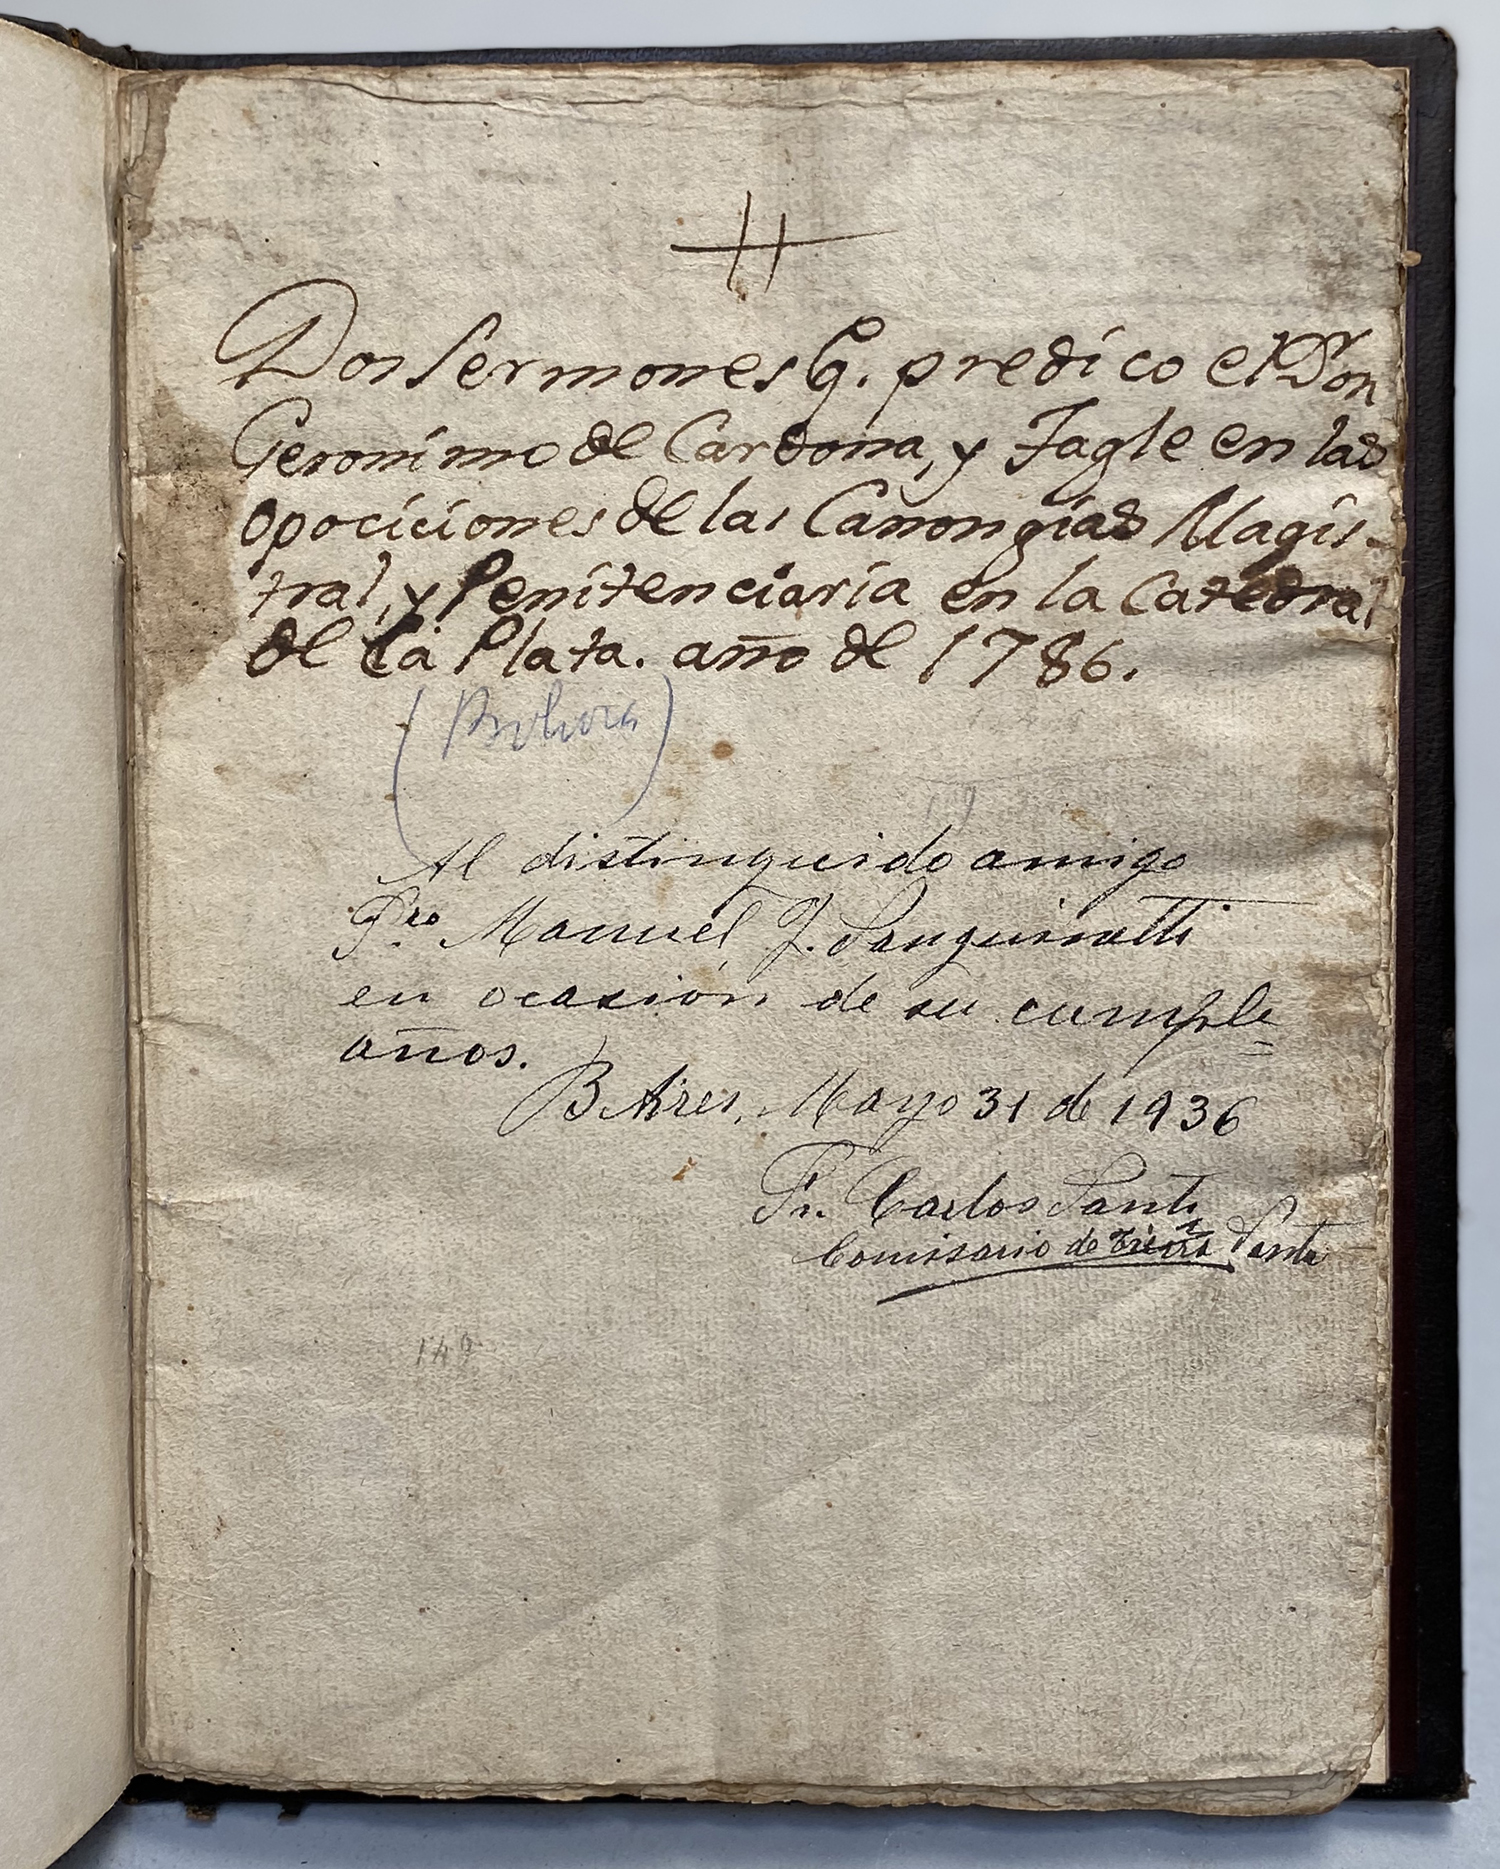 Dos Sermones q. predico el Dr Don
Geronimo de Cardona, y Tagle en las
opociciones de las Canongias Magis-
tral, y Penitenciaria en la Catedral
de La Plata. año de 1786.
(Bolivia)
Al distinguido amigo
Pro. Manuel J. Sanguinetti
en ocasión de su cumple=
años.
B Aires, Mayo 31 de 1936
Fr. Carlos Santi
Comisario de Tierra Santa
149